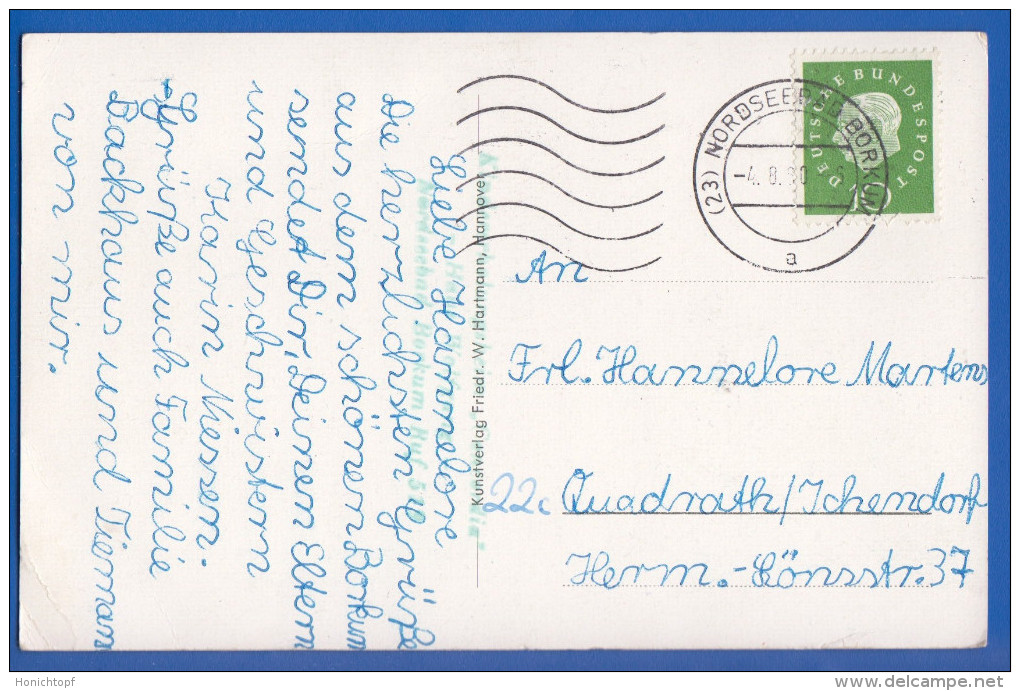 Liebe Hannelore
Die herzlichsten Grüße
aus dem schönen Borkum
sendet Dir, Deinen Eltern
und Geschwistern
Karin Niessen.
Grüße auch Familie
Backhaus und Tiemann
von mir.
Kunstverlag Friedr. W. Hartmann, Hannover
Nordseebad Borkum Ruf 510
DEUTSCHE BUNDESPOST
10
(23) NORDSEEBAD BORKUM
a
An
Frl. Hannelore Martens
22c Quadrath/Ichendorf
Herm.-Lönsstr. 37
Honichtopf
www.delcampe.net